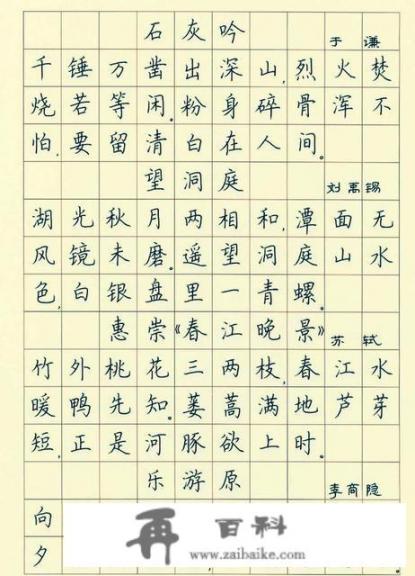 石灰吟 于谦
千锤万凿出深山,烈火焚
烧若等闲。粉身碎骨浑不
怕,要留清白在人间。
望洞庭 刘禹锡
湖光秋月两相和,潭面无
风镜未磨。遥望洞庭山水
色,白银盘里一青螺。
惠崇《春江晚景》 苏轼
竹外桃花三两枝,春江水
暖鸭先知。蒌蒿满地芦芽
短,正是河豚欲上时。
乐游原 李商隐
向
夕
再百科
www.zaibaike.com